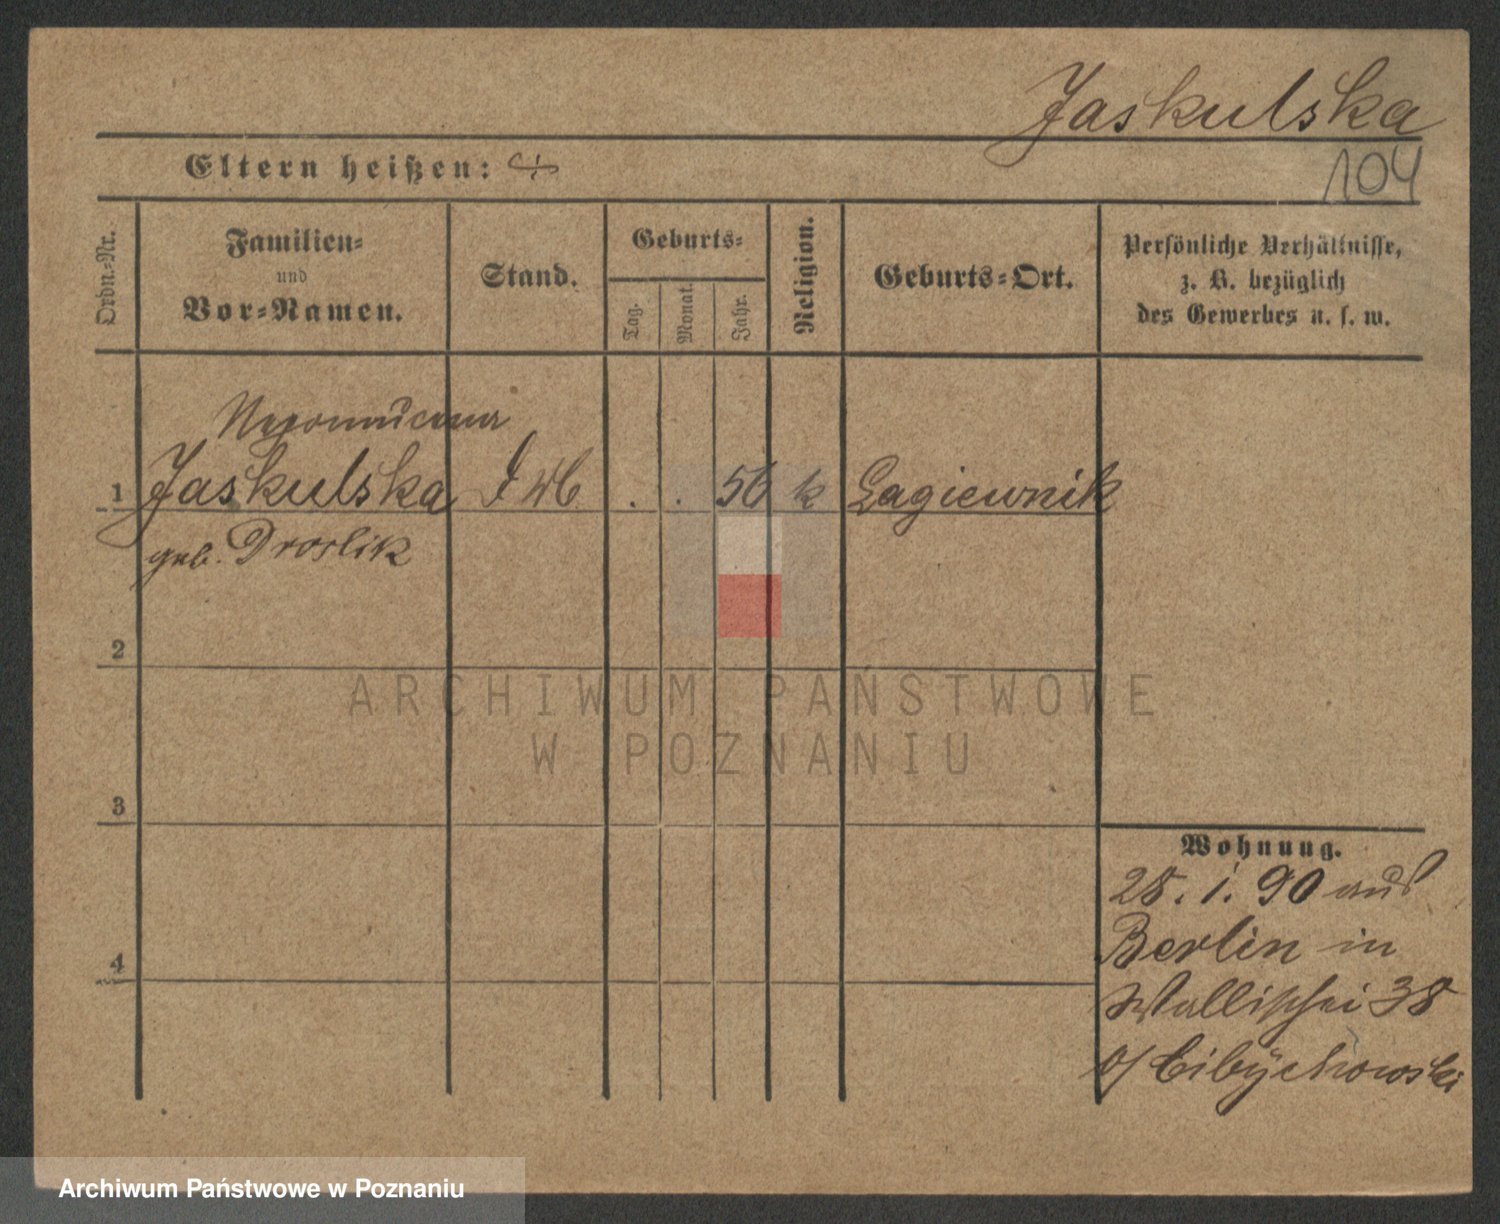 Jaskulska
104
Eltern heißen:
Ordn.-Nr.
Familien-
und
Vor-Namen.
Stand.
Geburts-
Tag.
Monat.
Jahr.
Religion.
Geburts-Ort.
Persönliche Verhältnisse,
z. B. bezüglich
des Gewerbes u. s. w.
Nepomucena
1 Jaskulska . . 56 k Lagiewnik
geb.
2
3
4
Wohnung.
28. 1. 90 aus
Berlin in
Wallischei 38
ARCHIWUM PAŃSTWOWE
W POZNANIU
Archiwum Państwowe w Poznaniu